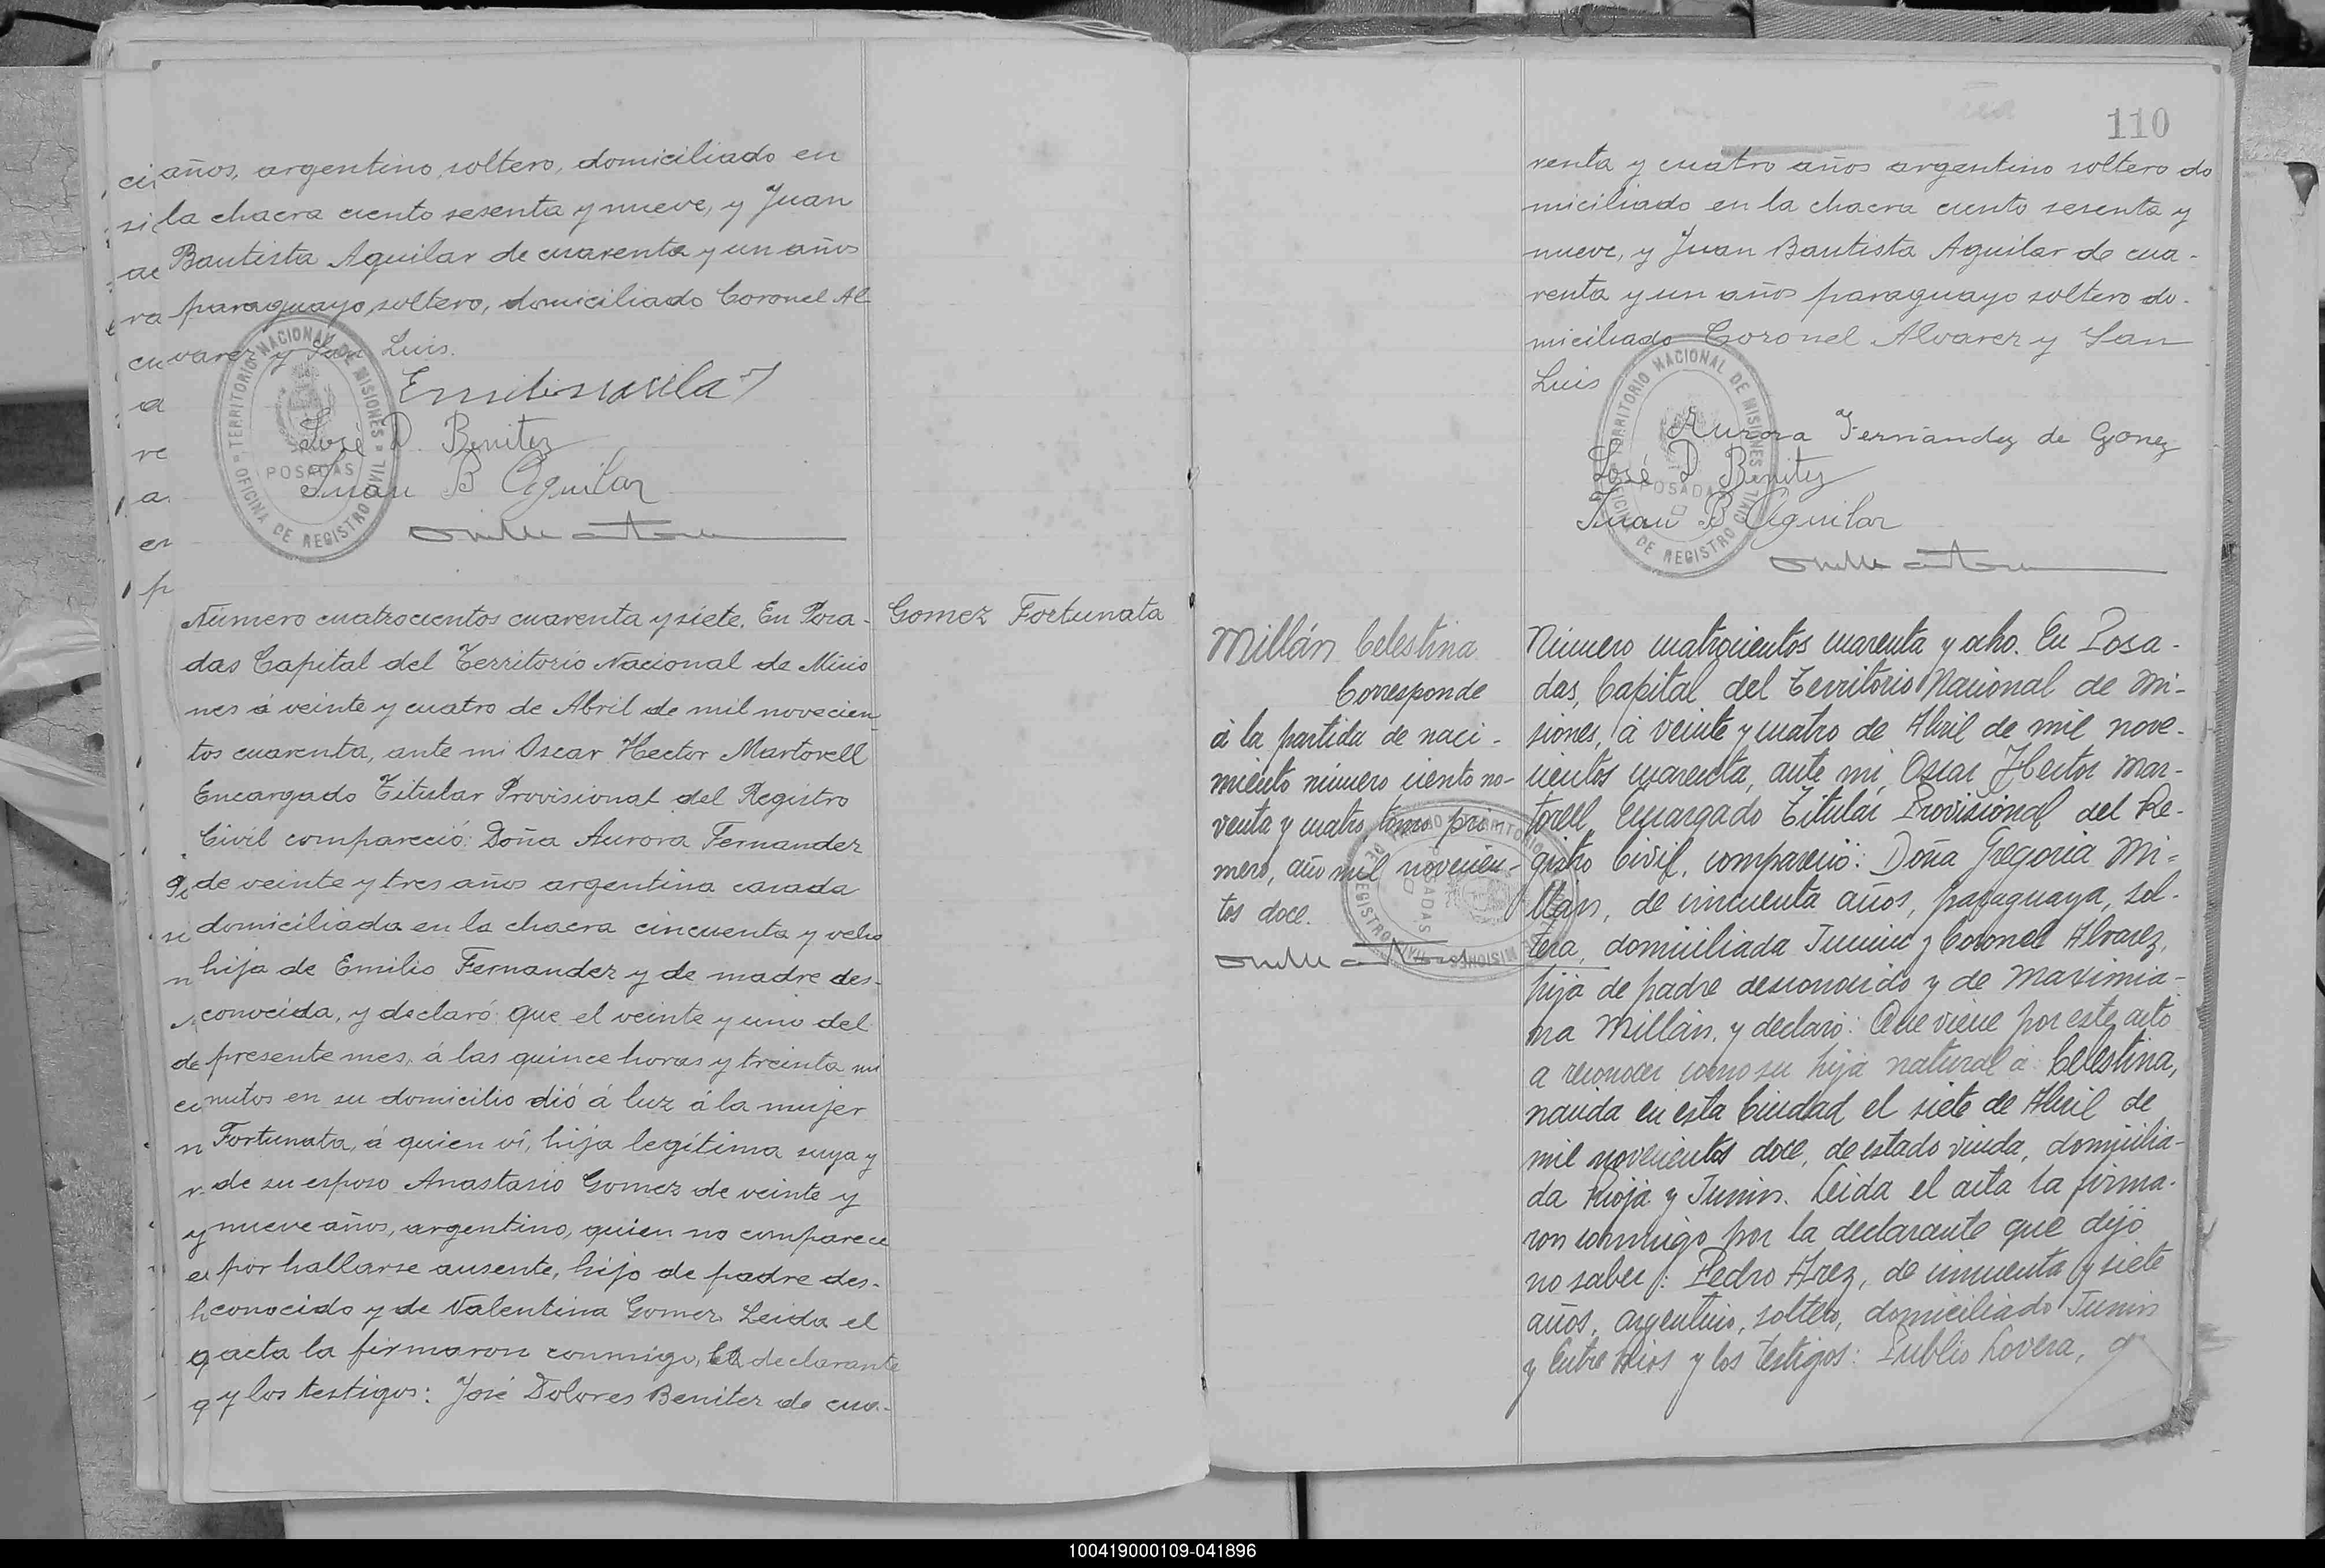 años, argentino, soltero, domiciliado en
la chacra ciento sesenta y nueve, y Juan
Bautista Aguilar de cuarenta y un años
paraguayo, soltero, domiciliado Coronel Al
varez y San Luis.
José D. Benitez
Juan B Aguilar
TERRITORIO NACIONAL DE MISIONES
OFICINA DE REGISTRO CIVIL
POSADAS
Número cuatrocientos cuarenta y siete. En Posa-
das Capital del Territorio Nacional de Micio
nes á veinte y cuatro de Abril de mil novecien
tos cuarenta, ante mi Oscar Hector Martorell
Encargado Titular Provisional del Registro
Civil compareció: Doña Aurora Fernandez
de veinte y tres años argentina casada
domiciliada en la chacra cincuenta y ocho
hija de Emilio Fernandez y de madre des-
conocida, y declaró: Que el veinte y uno del
presente mes, á las quince horas y treinta mi
nutos en su domicilio dió á luz á la mujer
Fortunata, á quien ví, hija legítima suya y
de su esposo Anastasio Gomez de veinte y
nueve años, argentino, quien no comparece
por hallarse ausente, hijo de padre des-
conocido y de Valentina Gomez. Leida el
acta la firmaron conmigo, la declarante
y los testigos: José Dolores Benitez de cua-
Gomez Fortunata
110
renta y cuatro años argentino soltero do
miciliado en la chacra ciento sesenta y
nueve, y Juan Bautista Aguilar de cua-
renta y un años paraguayo soltero do-
miciliado Coronel Alvarez y San
Luis
Aurora Fernandez de Gomez
José D Benitez
Juan B Aguilar
TERRITORIO NACIONAL DE MISIONES
OFICINA DE REGISTRO CIVIL
POSADAS
Millán Celestina
Corresponde
á la partida de naci-
miento número ciento no-
venta y cuatro, tomo pri-
mero, año mil novecien-
tos doce.
Número cuatrocientos cuarenta y ocho. En Posa-
das, Capital del Territorio Nacional de Mi-
siones, á veinte y cuatro de Abril de mil nove-
cientos cuarenta, ante mi, Oscar Hector Mar-
torell, Encargado Titular Provisional del Re-
gistro Civil, compareció: Doña Gregoria Mi-
llán, de cincuenta años, paraguaya, sol-
tera, domiciliada Junin y Coronel Alvarez,
hija de padre desconocido y de Maximia-
na Millán, y declaró: Que viene por este acto
a reconocer como su hija natural á: Celestina,
nacida en esta Ciudad el siete de Abril de
mil novecientos doce, de estado viuda, domicilia-
da Rioja y Junin. Leida el acta la firma-
ron conmigo por la declarante que dijo
no saber: Pedro Arez, de cincuenta y siete
años, argentino, soltero, domiciliado Junin
y Entre Rios y los testigos: Publio Lovera, d
100419000109-041896